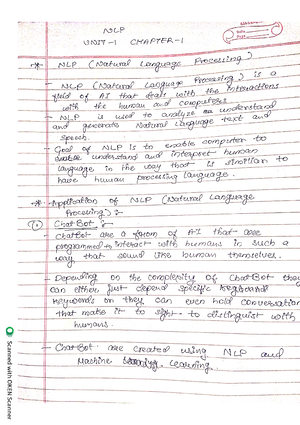 NLP
UNIT-1 CHAPTER-1
* NLP (Natural Language Processing)
- NLP (Natural Language Processing) is a
field of AI that deals with the interactions
with the human and computers.
- NLP is used to analyze understand
and generate Natural Language text and
speech.
- Goal of NLP is to enable computer to
understand and interpret human
language in the way that is similar to
how human processing language.
* Application of NLP (Natural Language
Processing) :-
1 ChatBot :-
ChatBot are a form of AI that are
programmed to interact with humans in such a
way that sound like human themselves.
- Depending on the complexity of ChatBot they
can either just depend specific keyboard
keywords or they can even hold conversation
that make it to distinguish with
humans.
- ChatBot are created using NLP and
Machine Learning.
Scanned with OKEN Scanner